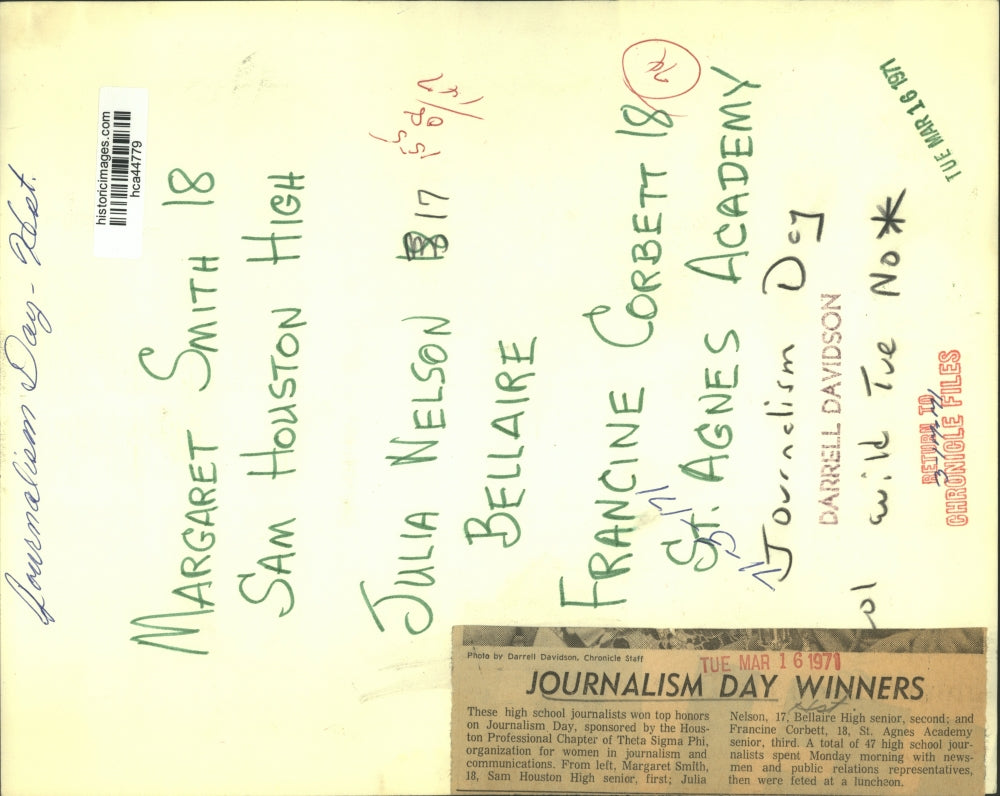 Journalism Day - Hst.
historicimages.com
hca44779
MARGARET SMITH 18
SAM HOUSTON HIGH
JULIA NELSON 17
BELLAIRE
FRANCINE CORBETT 18
ST. AGNES ACADEMY
Journalism Day
DARRELL DAVIDSON
Tue No*
TUE MAR 16 1971
RETURN TO
CHRONICLE FILES
Photo by Darrell Davidson, Chronicle Staff
TUE MAR 16 1971
JOURNALISM DAY WINNERS
Hst.
These high school journalists won top honors
on Journalism Day, sponsored by the Hous-
ton Professional Chapter of Theta Sigma Phi,
organization for women in journalism and
communications. From left, Margaret Smith,
18, Sam Houston High senior, first; Julia
Nelson, 17, Bellaire High senior, second; and
Francine Corbett, 18, St. Agnes Academy
senior, third. A total of 47 high school jour-
nalists spent Monday morning with news-
men and public relations representatives,
then were feted at a luncheon.